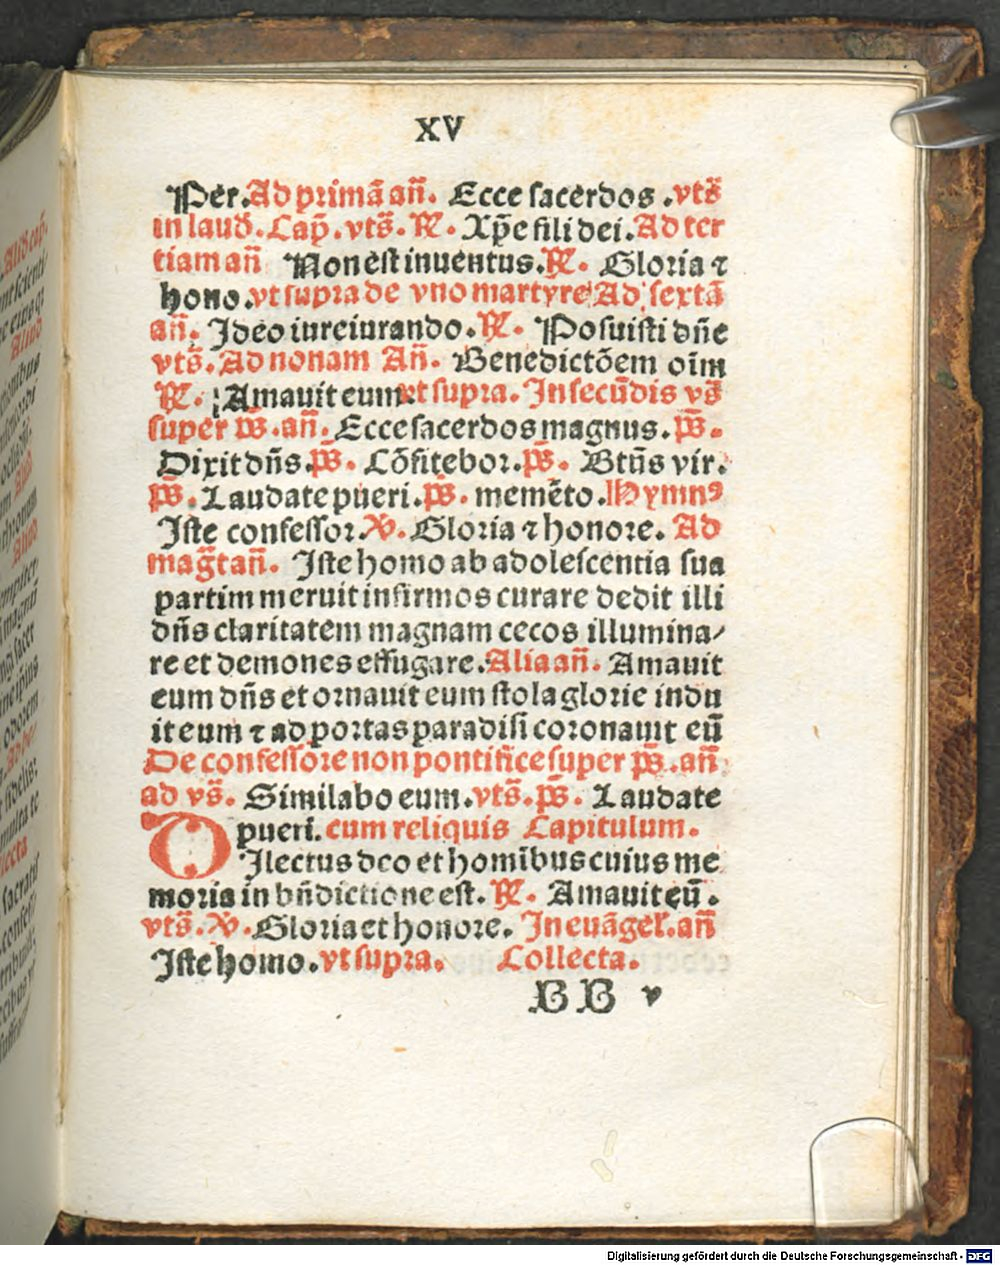 XV
Per. Ad primã añ. Ecce sacerdos. vts̃
in laud. Cap̃. vts̃. ℟. Xp̃e fili dei. Ad ter
tiam añ Non est inuentus. ℟. Gloria ⁊
hono. vt supra de vno martyre Ad sextã
añ. Ideo iureiurando. ℟. Posuisti dñe
vts̃. Ad nonam Añ. Benedictõem oĩm
℟. Amauit eum vt supra. In secũdis vs̃
super ps̃. añ. Ecce sacerdos magnus. ps̃.
Dixit dñs. ps̃. Cõfitebor. ps̃. Btũs vir.
ps̃. Laudate pueri. ps̃. memẽto. Hymnꝰ
Iste confessor. ℣. Gloria ⁊ honore. Ad
mag̃t añ. Iste homo ab adolescentia sua
partim meruit infirmos curare dedit illi
dñs claritatem magnam cecos illumina/
re et demones effugare. Alia añ. Amauit
eum dñs et ornauit eum stola glorie indu
it eum ⁊ ad portas paradisi coronauit eũ
De confessore non pontifice super ps̃. añ
ad vs̃. Similabo eum. vts̃. ps̃. Laudate
pueri. cum reliquis Capitulum.
DIlectus deo et homĩbus cuius me
moria in bñdictione est. ℟. Amauit eũ.
vts̃. ℣. Gloria et honore. In euãgel. añ
Iste homo. vt supra. Collecta.
BB v
Digitalisierung gefördert durch die Deutsche Forschungsgemeinschaft - DFG